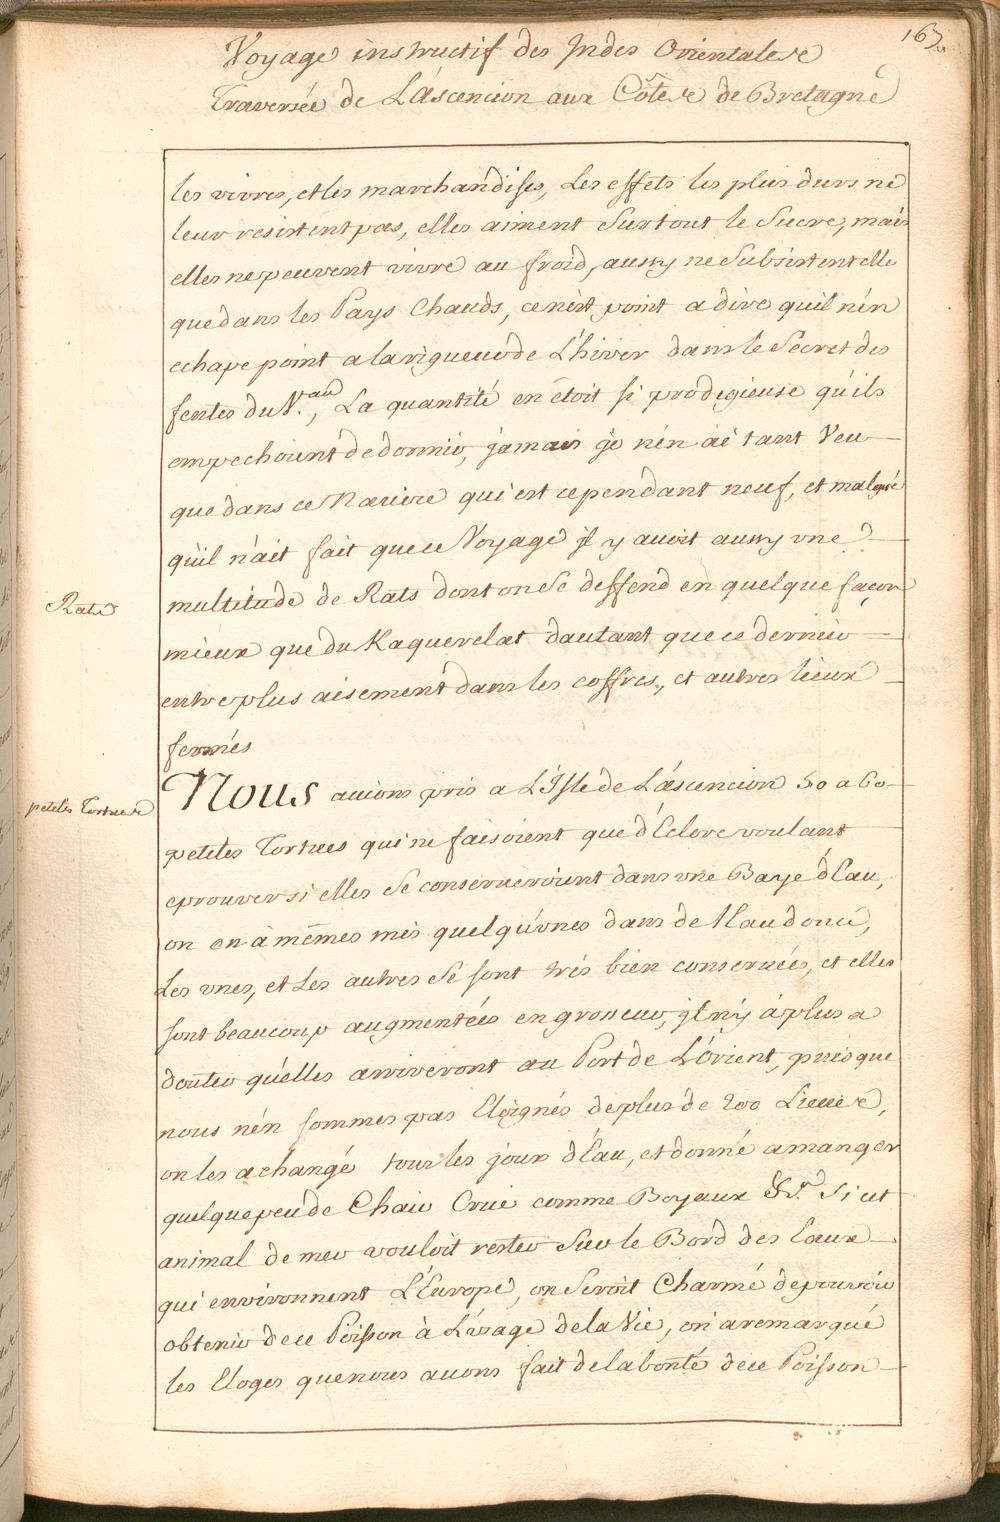 167
Voyage instructif des Indes Orientales
Traversée de L'ascencion aux Côtes de Bretagne
les vivres, et les marchandises, Les effets les plus durs ne
leur resistent pas, elles aiment Surtout le Sucre, mais
elles ne peuvent vivre au froid, aussy ne Subsistent elle
que dans les Pays Chauds, ce n'est point a dire quil n'én
echape point a la rigueur de L'hiver dans le Secret des
fentes du V.au, La quantité en étoit si prodigieuse qu'ils
empechoient de dormir, jamais je n'én ai tant Veu
que dans ce Navire qui est cependant neuf, et malgré
qu'il n'ait fait que ce Voyage jl y avoit aussy vne
multitude de Rats dont on Se deffend en quelque façon
mieux que du Kaquerelat dautant que ce dernier
entre plus aisement dans les coffres, et autres lieux
fermés
Rats
petites Tortues
Nous avions pris a L'Isle de L'ascencion 50 a 60
petites Tortues qui ne faisoient que d'Eclore voulant
eprouver si elles Se conserveroient dans vne Baye d'Eau,
on en à mêmes mis quelqu'vnes dans de l'Eau douce,
Les vnes, et Les autres Se sont trés bien conservées, et elles
sont beaucoup augmentées en grosseur, jl n'y à plus a
douter qu'elles arriveront au Port de L'Orient, puisque
nous n'én sommes pas Eloignés de plus de 200 Lieues,
on les a changé tous les jours d'Eau, et donné a manger
quelque peu de Chair Crüe comme Boyaux &c.a Si cet
animal de mer vouloit rester Sur le Bord des Eaux
qui environnent L'Europe, on Seroit Charmé de pouvoir
obtenir de ce Poisson à L'vsage de la Vie, on a remarqué
les Eloges que nous avons fait de la bonté de ce Poisson